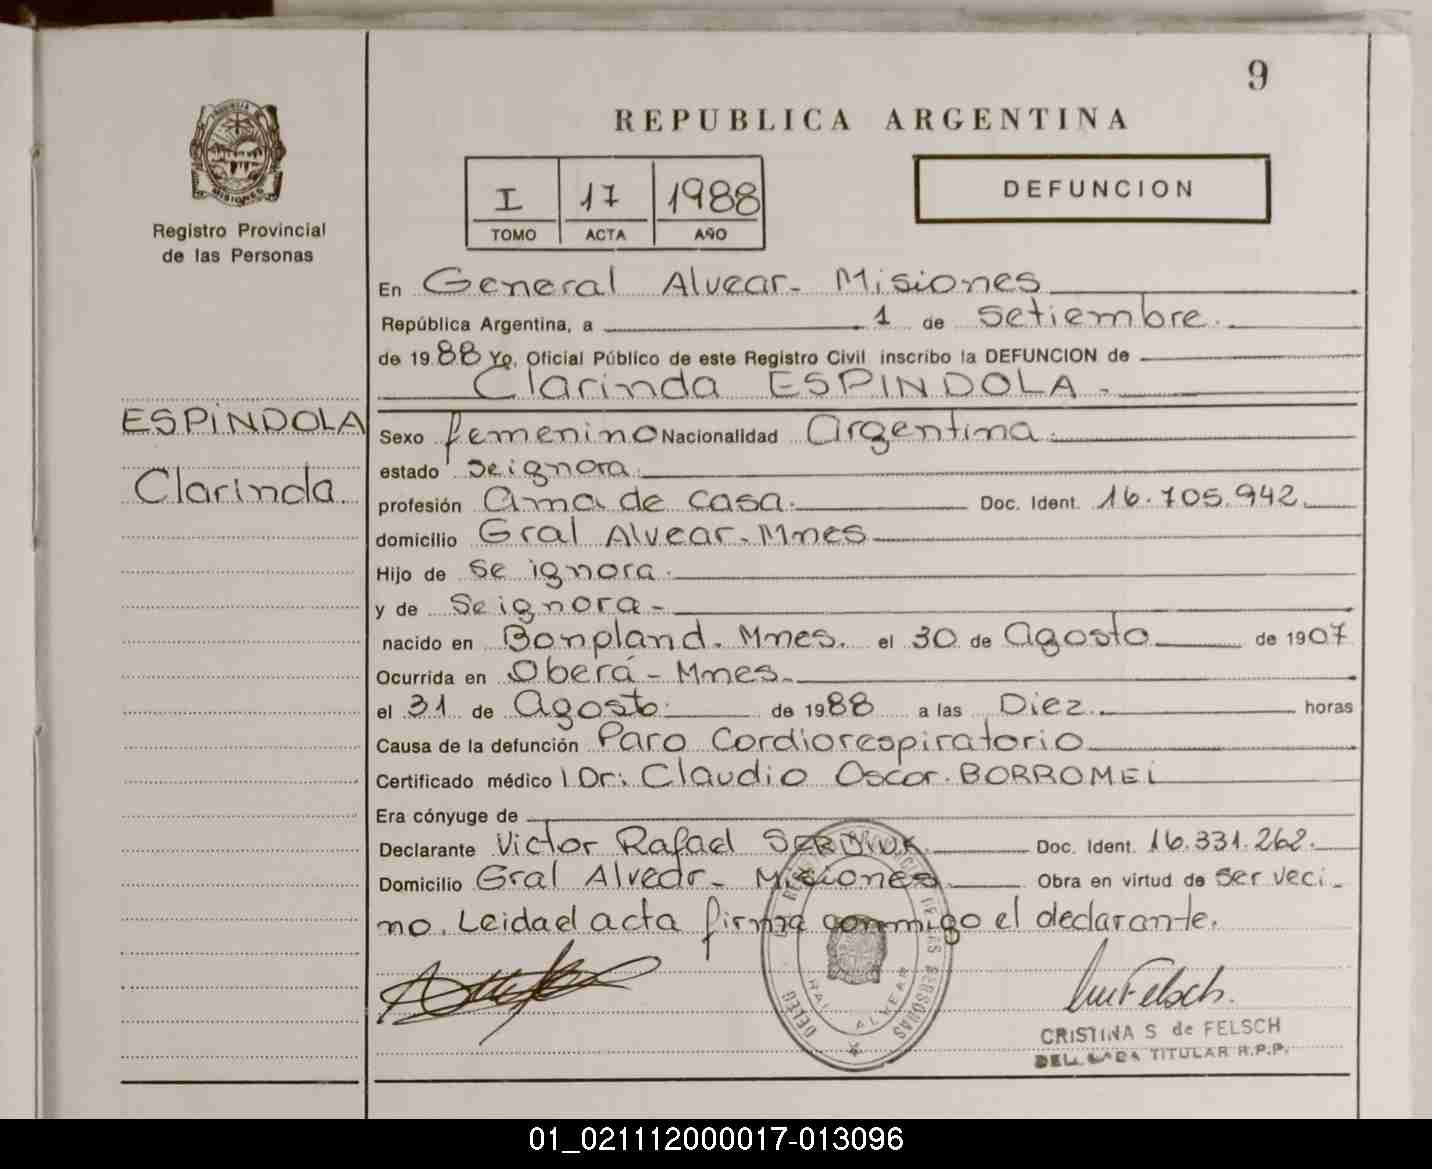 9
REPUBLICA ARGENTINA
I 17 1988
TOMO ACTA AÑO
DEFUNCION
PROVINCIA
MISIONES
Registro Provincial
de las Personas
ESPINDOLA
Clarinda
En General Alvear - Misiones
República Argentina, a 1 de Setiembre.
de 1988 Yo, Oficial Público de este Registro Civil inscribo la DEFUNCION de
Clarinda ESPINDOLA -
Sexo femenino Nacionalidad Argentina.
estado se ignora.
profesión ama de casa. Doc. Ident. 16.705.942.
domicilio Gral Alvear - Mnes
Hijo de se ignora.
y de Se ignora -
nacido en Bonpland. Mnes. el 30 de Agosto de 1907
Ocurrida en Oberá - Mnes.
el 31 de Agosto. de 1988 a las Diez. horas
Causa de la defunción Paro Cordiorespiratorio
Certificado médico Dr: Claudio Oscar. BORROMEi
Era cónyuge de
Declarante Victor Rafael Doc. Ident. 16.331.262.
Domicilio Gral Alvear - Misiones Obra en virtud de ser veci-
no. Leida el acta firma conmigo el declarante.
CRISTINA S de FELSCH
TITULAR R.P.P.
01_021112000017-013096